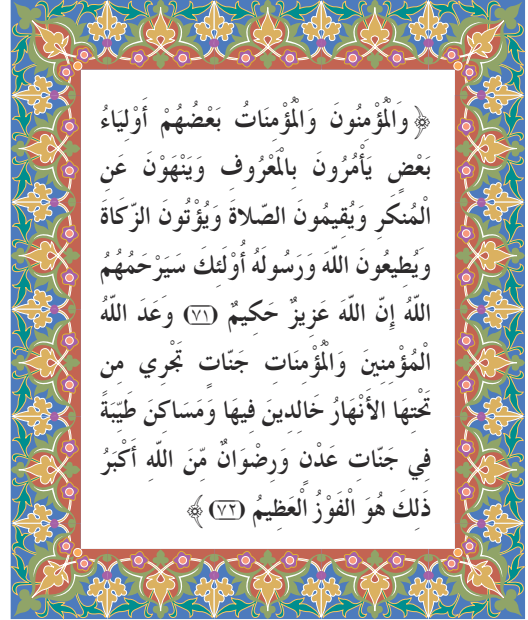 ﴿ وَالْمُؤْمِنُونَ وَالْمُؤْمِنَاتُ بَعْضُهُمْ أَوْلِيَاءُ
بَعْضٍ يَأْمُرُونَ بِالْمَعْرُوفِ وَيَنْهَوْنَ عَنِ
الْمُنكَرِ وَيُقِيمُونَ الصّلاةَ وَيُؤْتُونَ الزّكَاةَ
وَيُطِيعُونَ اللّهَ وَرَسُولَهُ أُوْلَئِكَ سَيَرْحَمُهُمُ
اللّهُ إِنّ اللّهَ عَزِيزٌ حَكِيمٌ (٧١) وَعَدَ اللّهُ
الْمُؤْمِنِينَ وَالْمُؤْمِنَاتِ جَنّاتٍ تَجْرِي مِن
تَحْتِهَا الأَنْهَارُ خَالِدِينَ فِيهَا وَمَسَاكِنَ طَيّبَةً
فِي جَنّاتِ عَدْنٍ وَرِضْوَانٌ مّنَ اللّهِ أَكْبَرُ
ذَلِكَ هُوَ الْفَوْزُ الْعَظِيمُ (٧٢) ﴾